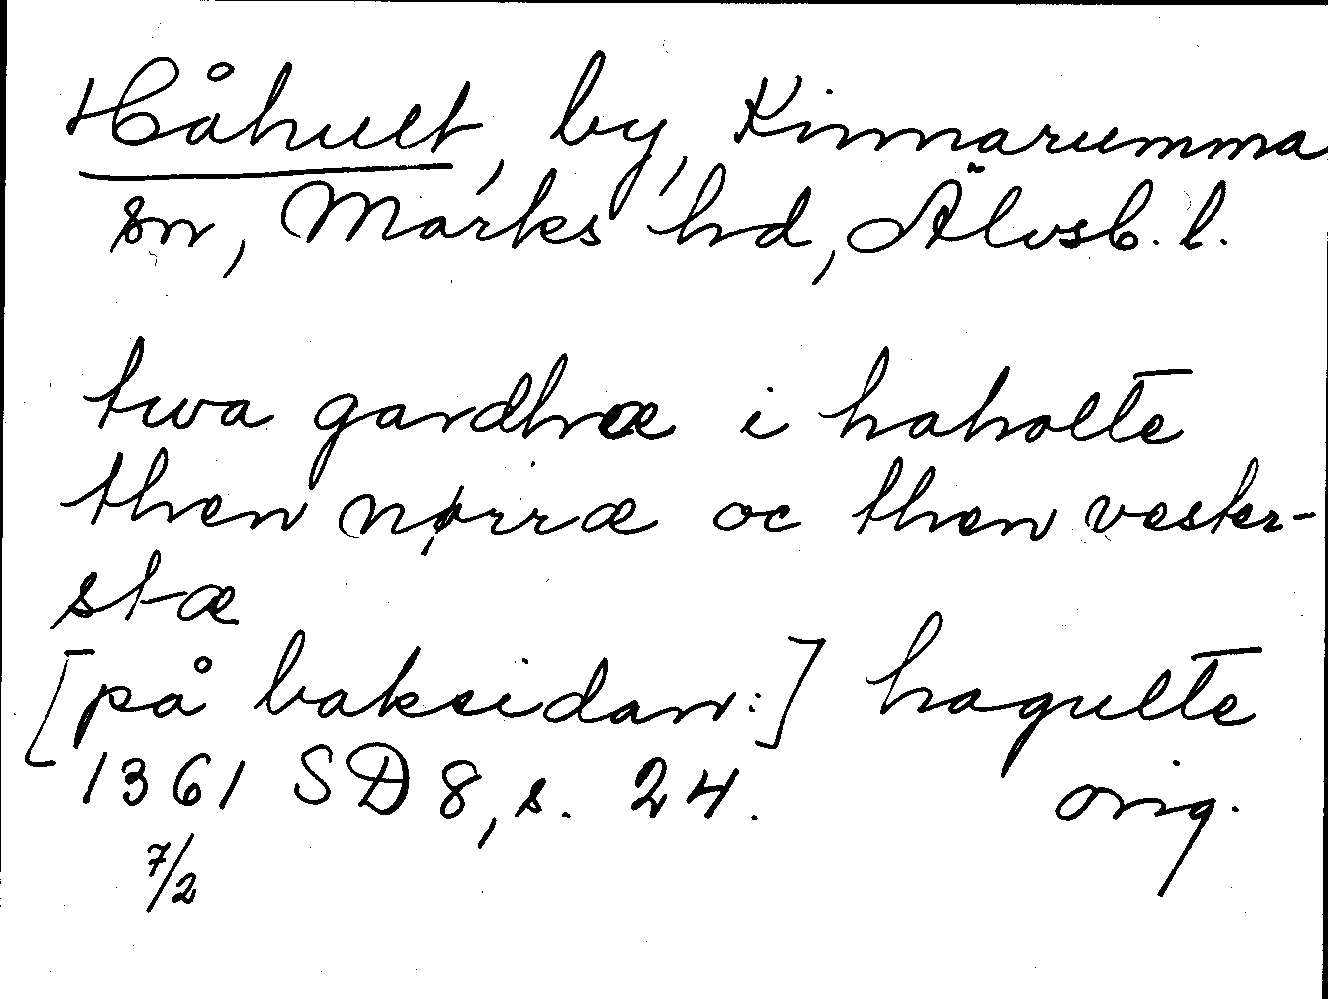 Håhult, by, Kinnarumma
sn, Marks hd, Älvsb. l.
twa gardhæ i haholte
then nørræ oc then vester-
stæ
[på baksidan:] hagulte
1361 SD 8, s. 24. orig.
7/2